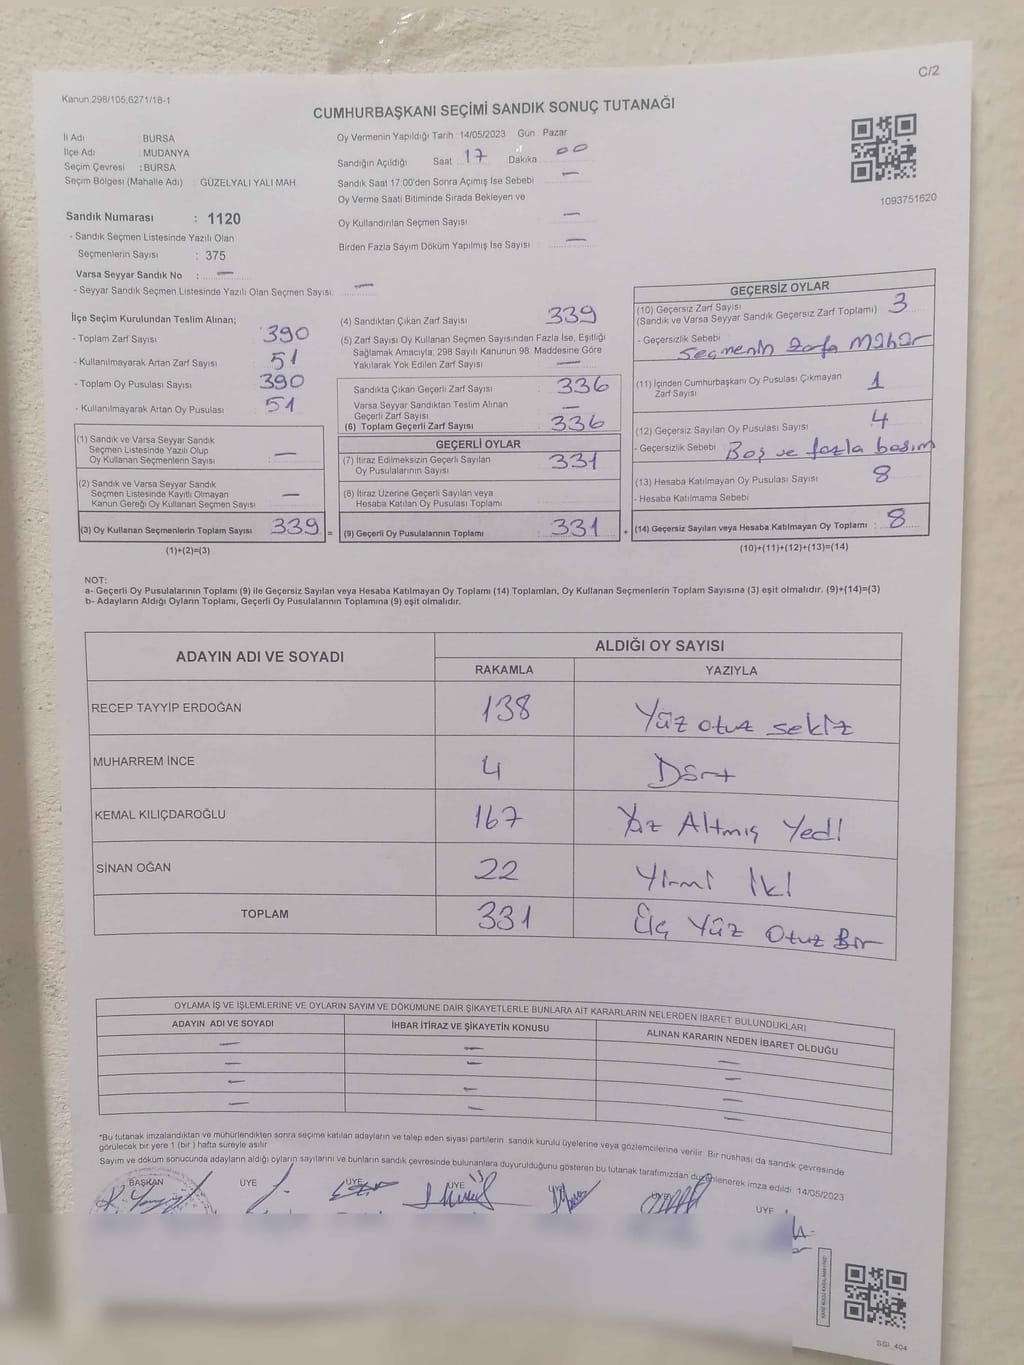 C/2
Kanun:298/105;6271/18-1
CUMHURBAŞKANI SEÇİMİ SANDIK SONUÇ TUTANAĞI
İl Adı BURSA
İlçe Adı : MUDANYA
Seçim Çevresi : BURSA
Seçim Bölgesi (Mahalle Adı) GÜZELYALI YALI MAH
Sandık Numarası : 1120
- Sandık Seçmen Listesinde Yazılı Olan
Seçmenlerin Sayısı : 375
Varsa Seyyar Sandık No : —
- Seyyar Sandık Seçmen Listesinde Yazılı Olan Seçmen Sayısı: —
Oy Vermenin Yapıldığı Tarih :14/05/2023 Gün Pazar
Sandığın Açıldığı Saat 17 Dakika 00
Sandık Saat 17:00'den Sonra Açımış İse Sebebi —
Oy Verme Saati Bitiminde Sırada Bekleyen ve
Oy Kullandırılan Seçmen Sayısı —
Birden Fazla Sayım Döküm Yapılmış İse Sayısı —
1093751620
İlçe Seçim Kurulundan Teslim Alınan;
- Toplam Zarf Sayısı 390
- Kullanılmayarak Artan Zarf Sayısı 51
- Toplam Oy Pusulası Sayısı 390
- Kullanılmayarak Artan Oy Pusulası 51
(1) Sandık ve Varsa Seyyar Sandık
Seçmen Listesinde Yazılı Olup
Oy Kullanan Seçmenlerin Sayısı : —
(2) Sandık ve Varsa Seyyar Sandık
Seçmen Listesinde Kayıtlı Olmayan
Kanun Gereği Oy Kullanan Seçmen Sayısı —
(3) Oy Kullanan Seçmenlerin Toplam Sayısı 339 =
(1)+(2)=(3)
(4) Sandıktan Çıkan Zarf Sayısı 339
(5) Zarf Sayısı Oy Kullanan Seçmen Sayısından Fazla İse, Eşitliği
Sağlamak Amacıyla; 298 Sayılı Kanunun 98. Maddesine Göre
Yakılarak Yok Edilen Zarf Sayısı —
Sandıkta Çıkan Geçerli Zarf Sayısı 336
Varsa Seyyar Sandıktan Teslim Alınan
Geçerli Zarf Sayısı —
(6) Toplam Geçerli Zarf Sayısı 336
GEÇERLİ OYLAR
(7) İtiraz Edilmeksizin Geçerli Sayılan
Oy Pusulalarının Sayısı 331
(8) İtiraz Üzerine Geçerli Sayılan veya
Hesaba Katılan Oy Pusulası Toplamı
(9) Geçerli Oy Pusulalarının Toplamı 331 +
GEÇERSİZ OYLAR
(10) Geçersiz Zarf Sayısı
(Sandık ve Varsa Seyyar Sandık Geçersiz Zarf Toplamı) 3
- Geçersizlik Sebebi
Seçmenin zarfa Mühür
(11) İçinden Cumhurbaşkanı Oy Pusulası Çıkmayan
Zarf Sayısı 1
(12) Geçersiz Sayılan Oy Pusulası Sayısı 4
- Geçersizlik Sebebi Boş ve fazla basım
(13) Hesaba Katılmayan Oy Pusulası Sayısı 8
- Hesaba Katılmama Sebebi
(14) Geçersiz Sayılan veya Hesaba Katılmayan Oy Toplamı : 8
(10)+(11)+(12)+(13)=(14)
NOT:
a- Geçerli Oy Pusulalarının Toplamı (9) ile Geçersiz Sayılan veya Hesaba Katılmayan Oy Toplamı (14) Toplamları, Oy Kullanan Seçmenlerin Toplam Sayısına (3) eşit olmalıdır. (9)+(14)=(3)
b- Adayların Aldığı Oyların Toplamı, Geçerli Oy Pusulalarının Toplamına (9) eşit olmalıdır.
ADAYIN ADI VE SOYADI
ALDIĞI OY SAYISI
RAKAMLA YAZIYLA
RECEP TAYYİP ERDOĞAN 138 Yüz otuz sekiz
MUHARREM İNCE 4 Dört
KEMAL KILIÇDAROĞLU 167 Yüz Altmış Yedi
SİNAN OĞAN 22 Yirmi İki
TOPLAM 331 Üç Yüz Otuz Bir
OYLAMA İŞ VE İŞLEMLERİNE VE OYLARIN SAYIM VE DÖKÜMÜNE DAİR ŞİKAYETLERLE BUNLARA AİT KARARLARIN NELERDEN İBARET BULUNDUKLARI
ADAYIN ADI VE SOYADI İHBAR İTİRAZ VE ŞİKAYETİN KONUSU ALINAN KARARIN NEDEN İBARET OLDUĞU
— — —
— — —
— — —
— — —
*Bu tutanak imzalandıktan ve mühürlendikten sonra seçime katılan adayların ve talep eden siyasi partilerin sandık kurulu üyelerine veya gözlemcilerine verilir. Bir nüshası da sandık çevresinde
görülecek bir yere 1 (bir ) hafta süreyle asılır
Sayım ve döküm sonucunda adayların aldığı oyların sayılarını ve bunların sandık çevresinde bulunanlara duyurulduğunu gösteren bu tutanak tarafımızdan düzenlenerek imza edildi. 14/05/2023
BAŞKAN ÜYE ÜYE ÜYE ÜYE ÜYE ÜYE
SGI_404